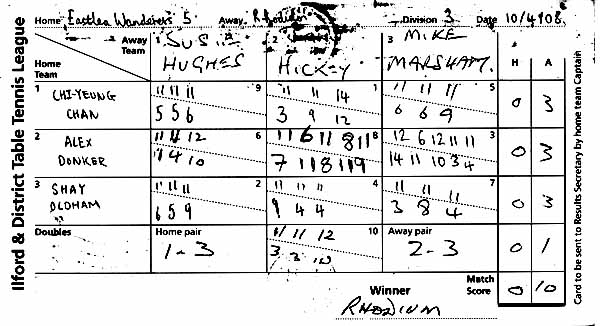 Ilford & District Table Tennis League
Home Eastlea Wanderers 5 Away Rhodium Division 3 Date 10/4/08
Away Team 1 SUSIE HUGHES 2 HICKEY 3 MIKE MARSHAM. H A
Home Team
1 CHI-YEUNG CHAN 11 11 11 9 11 11 14 1 11 11 11 5 0 3
5 5 6 3 9 12 6 6 9
2 ALEX DONKER 11 4 12 6 11 6 11 8 11 8 12 6 12 11 11 3 0 3
4 10 7 11 8 11 9 14 11 10 3 4
3 SHAY OLDHAM 11 11 11 2 11 11 11 4 11 11 11 7 0 3
6 5 9 9 4 4 3 8 4
Doubles Home pair 11 11 12 10 Away pair
1-3 3 3 10 2-3 0 1
Match Score 0 10
Winner
RHODIUM
Card to be sent to Results Secretary by home team Captain